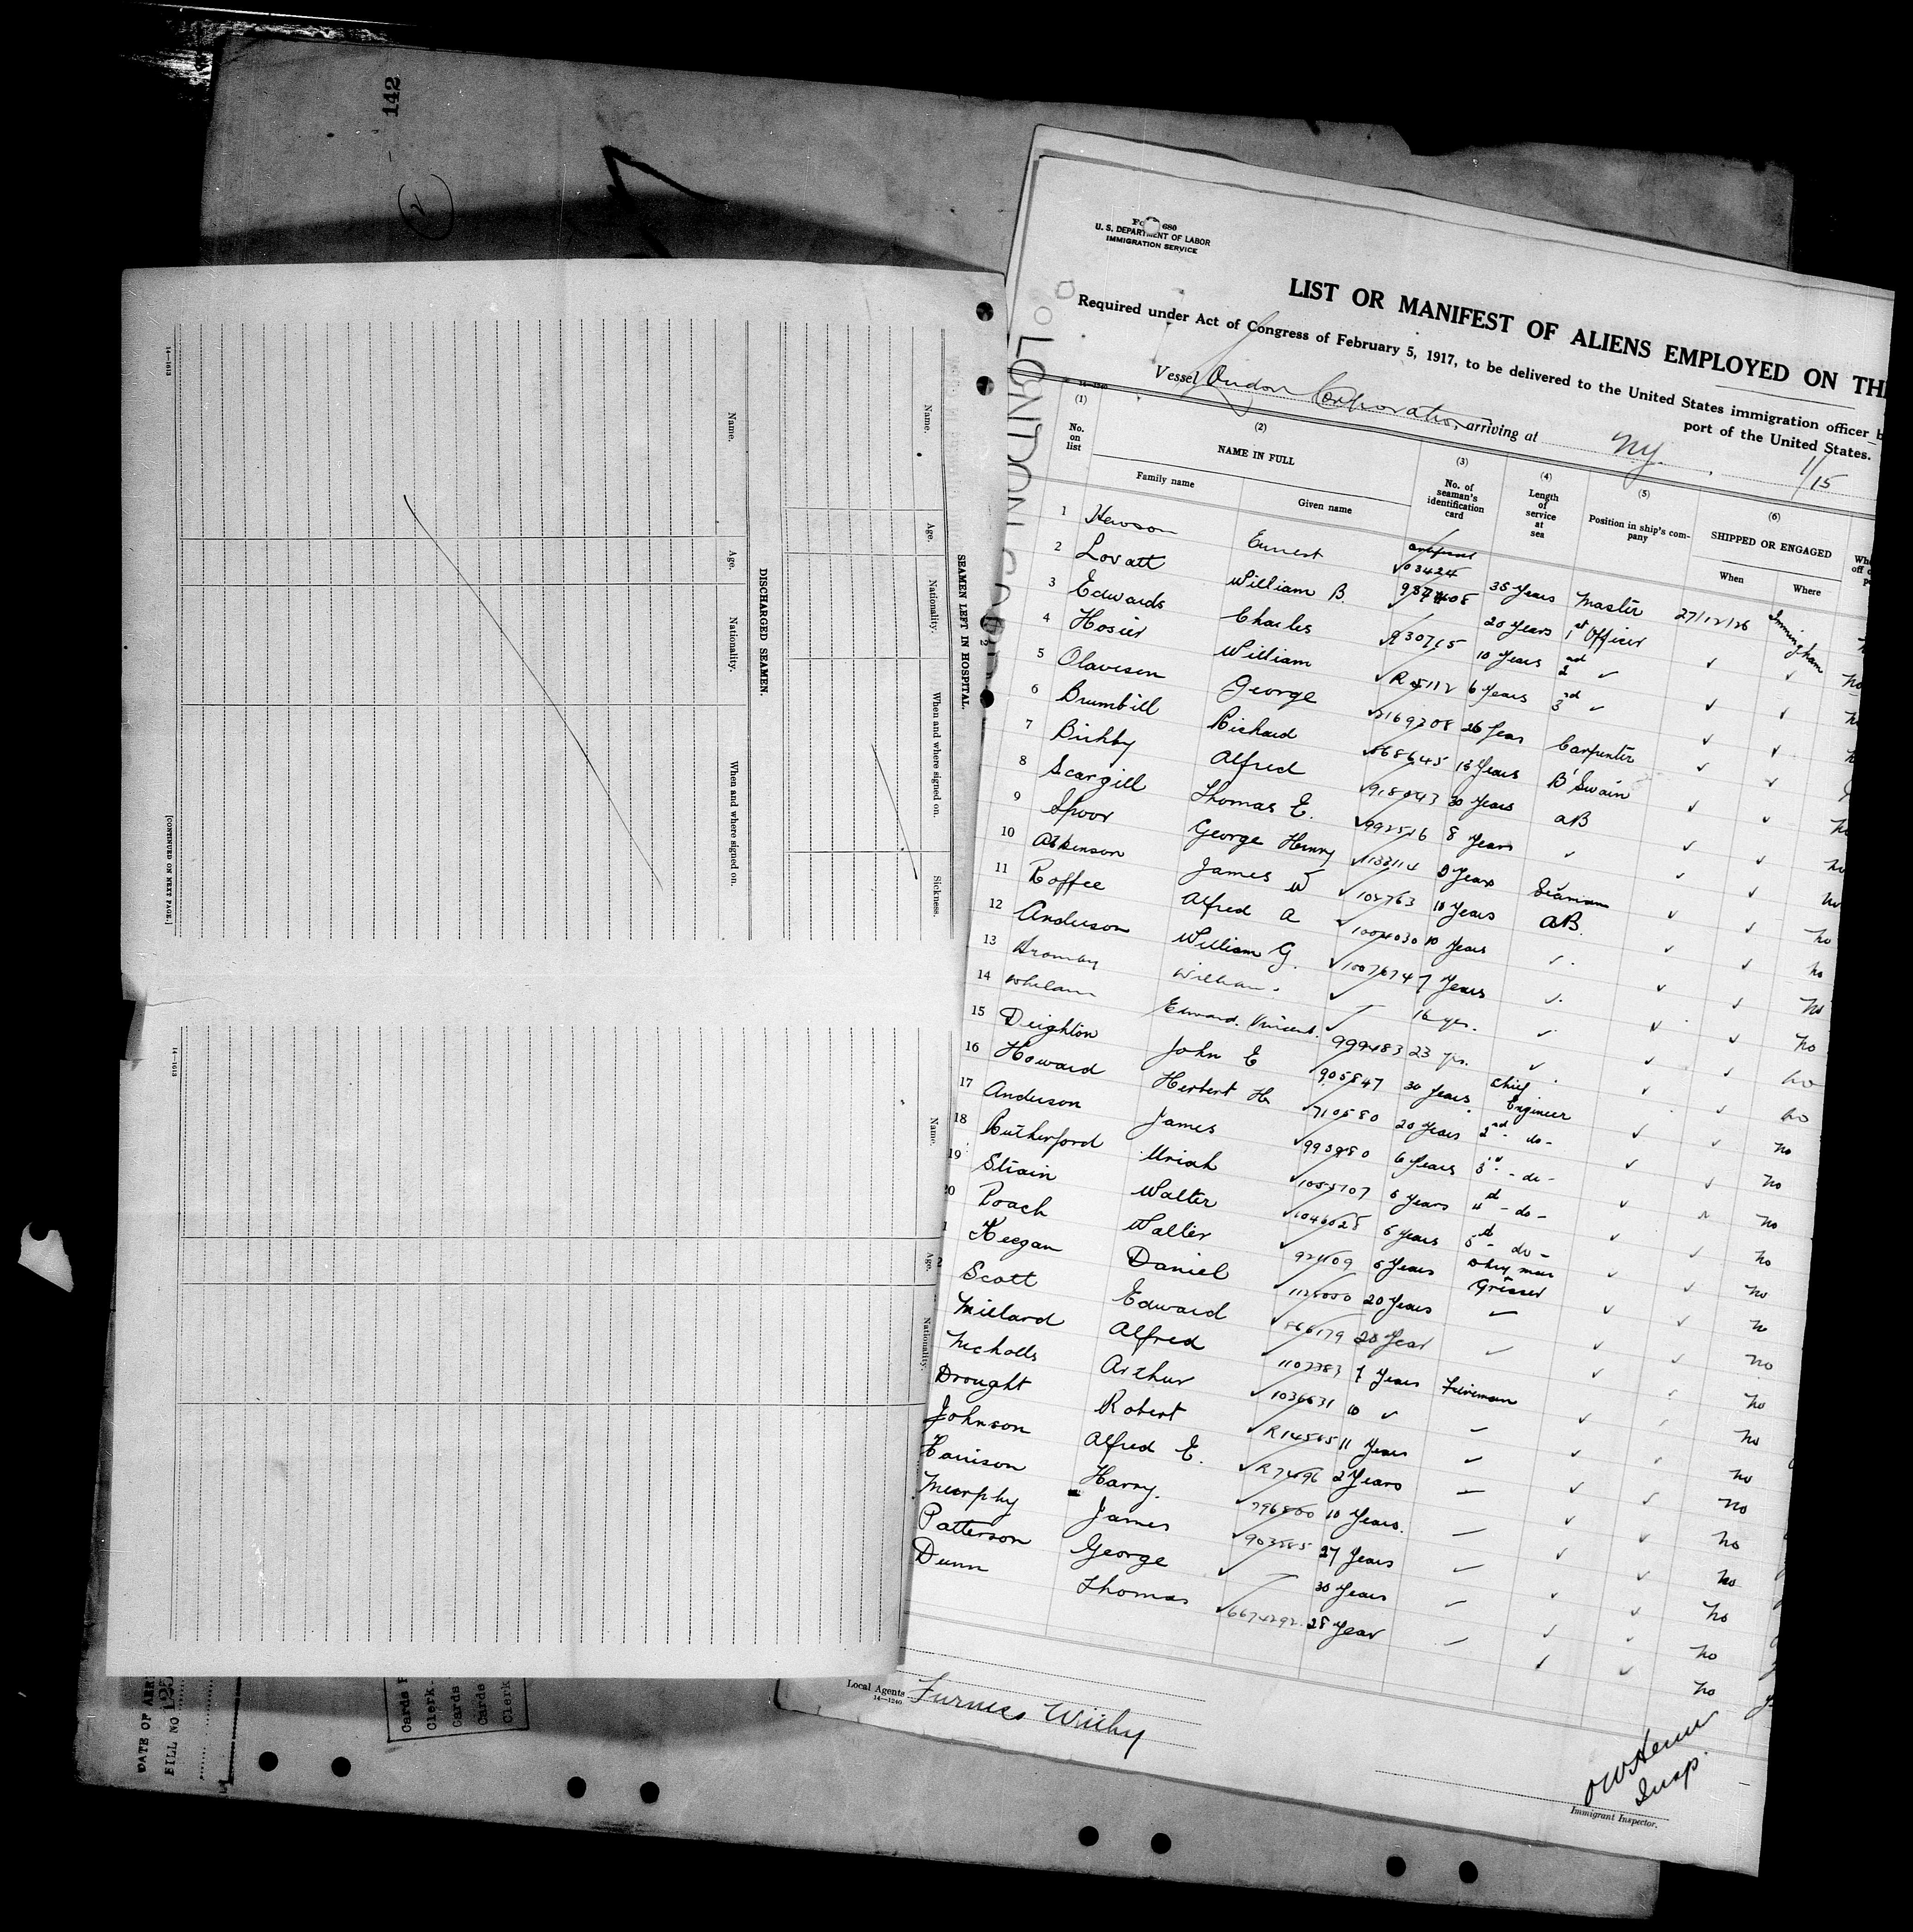 142
2
Form 680
U. S. DEPARTMENT OF LABOR
IMMIGRATION SERVICE
LIST OR MANIFEST OF ALIENS EMPLOYED ON TH
Required under Act of Congress of February 5, 1917, to be delivered to the United States immigration officer b
port of the United States.
Vessel London Corporation, arriving at N.Y. 1/15
14—1240
(1) (2) (3) (4) (5) (6)
No. on list NAME IN FULL No. of seaman's identification card Length of service at sea Position in ship's company SHIPPED OR ENGAGED
Family name Given name When Where
1 Hewson Ernest 03424 35 Years Master 27/12/26 Immingham
2 Lovatt William B. 20 Years 1st Officer
3 Edwards Charles 930715 10 Years 2nd ✓ no
4 Hosier William R 5112 6 Years 3rd ✓
5 Olavesen George 26 Years Carpenter
6 Brumbill Richard 868645 15 Years B'Swain
7 Birkby Alfred 918043 30 Years AB
8 Scargill Thomas E. 992516 8 Years ✓
9 Spoor George Henry 1133114 Years Seaman no
10 Atkinson James W 104763 18 Years AB. no
11 Roffee Alfred A 1004030 10 Years no
12 Anderson William G. 1007674 7 Years no
13 William 16 yrs. no
14 Whelan Edward Vincent 999483 23 yrs. no
15 Deighton John E 905847 30 Years Chief Engineer no
16 Howard Herbert H. 710580 20 Years 2nd - do - no
17 Anderson James 993980 6 Years 3rd - do - no
18 Rutherford Uriah 1055107 5 Years 4th - do - no
19 Strain Walter 1046028 5 Years 5th - do - no
20 Roach Walter 5 Years no
Keegan Daniel 1125000 20 Years Greaser no
Scott Edward 866179 20 Year no
Millard Alfred 1107383 7 Years Fireman no
Nicholls Arthur 1036631 10 ✓ no
Drought Robert R 14565 11 Years no
Johnson Alfred E. R 7496 2 Years no
Harrison Harry. 796800 10 Years. no
Murphy James 903585 27 Years no
Patterson George 30 Years no
Dunn Thomas 28 Year no
Local Agents Furness Withy
14—1240
Insp.
Immigrant Inspector.
SEAMEN LEFT IN HOSPITAL.
Name. Age. Nationality. When and where signed on. Sickness.
DISCHARGED SEAMEN.
Name. Age. Nationality. When and where signed on.
[CONTINUED ON NEXT PAGE.]
14—1613
Name. Age. Nationality.
14—1613
DATE OF ARR
FILL NO 125
Cards
Clerk
Cards
Cards
Clerk